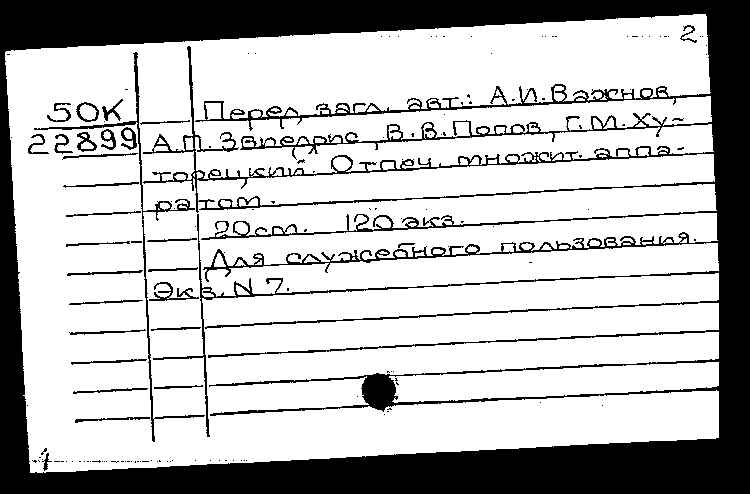 2
50К
Перед загл. авт.: А.И. Важнов,
22899 А.П. В.В. Попов, Г.М. Ху-
торецкий. Отпеч. множит. аппа-
ратом.
20 см. 120 экз.
Для служебного пользования.
Экз. N 7.
1